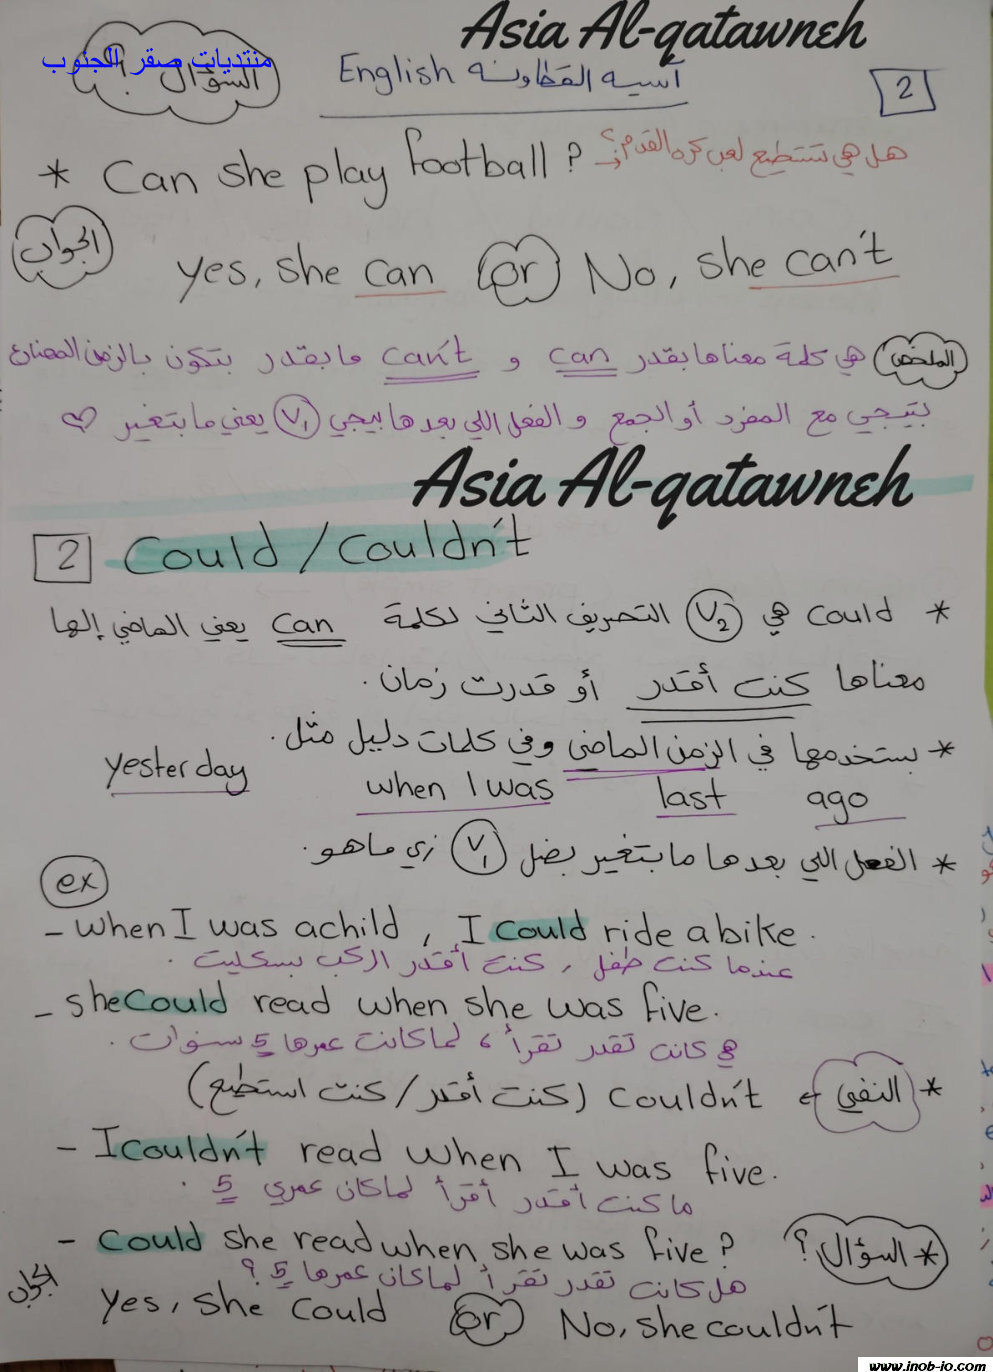 Asia Al-qatawneh
منتديات صقر الجنوب
السؤال ؟
English آسيه القطاونه
2
* Can she play football ? هل هي تستطيع لعب كره القدم ؟
الجواب
Yes, she can or No, she can't
الملخص هي كلمة معناها بقدر can و can't ما بقدر بتكون بالزمن المضارع
بتيجي مع المفرد أو الجمع و الفعل اللي بعدها بيجي V1 يعني ما بتغير ♡
Asia Al-qatawneh
2 Could / Couldn't
* could هي V2 التصريف الثاني لكلمة can يعني الماضي إلها
معناها كنت أقدر أو قدرت زمان .
* بستخدمها في الزمن الماضي وفي كلمات دليل مثل .
yesterday when I was last ago
* الفعل اللي بعدها ما بتغير بضل V1 زي ما هو .
ex
- when I was a child , I could ride a bike .
عندما كنت طفل , كنت أقدر اركب بسكليت .
- she could read when she was five .
هي كانت تقدر تقرأ ، لما كانت عمرها 5 سنوات .
* النفي ← Couldn't (كنت أقدر / كنت استطيع)
- I couldn't read when I was five .
ما كنت أقدر أقرأ لما كان عمري 5 .
* السؤال ؟
- Could she read when she was five ?
هل كانت تقدر تقرأ لما كان عمرها 5 ؟
الجواب
Yes, she could or No, she couldn't
www.inob-jo.com